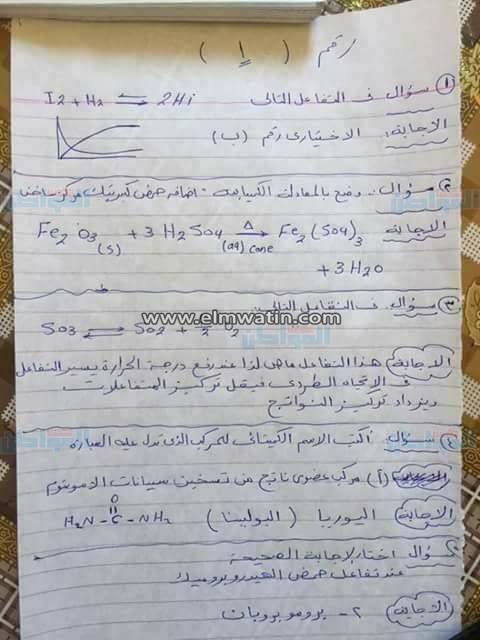 رقم ( 1 )
① سؤال في التفاعل التالي
I2 + H2 ⇌ 2Hi
الاجابة: الاختيارى رقم (ب)
② سؤال. وضح بالمعادلة الكيميائية - اضافة حمض كبريتيك مركز ساخن
الاجابة Fe2O3 (s) + 3H2SO4 (aq) conc →Δ Fe2(SO4)3
+ 3H2O
③ سؤال في التفاعل التالى
www.elmwatin.com
المواطن
SO3 ⇌ SO2 + ½ O2
الاجابة هذا التفاعل ماص لذا عند رفع درجة الحرارة يسير التفاعل
في الاتجاه الطردى فيقل تركيز المتفاعلات
ويزداد تركيز النواتج
سؤال أكتب الاسم الكيميائى للمركب الذى تدل عليه العبارة
(أ) مركب عضوى ناتج من تسخين سيانات الامونيوم
الاجابة اليوريا ( البولينا ) H2N-C-NH2
O
سؤال اختار الإجابة الصحيحة
عند تفاعل حمض الهيدروبروميك
الاجابة ٢- برومو بروبان